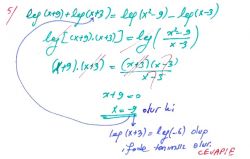 5/ log(x+9)+log(x+3) = log(x²-9) - log(x-3)
log[(x+9).(x+3)] = log(x²-9 / x-3)
(x+9).(x+3) = (x+3)(x-3) / x-3
x+9=0
x=-9 olur ki
log(x+3) = log(-6) olup
ifade tanımsız olur.
CEVAP: E